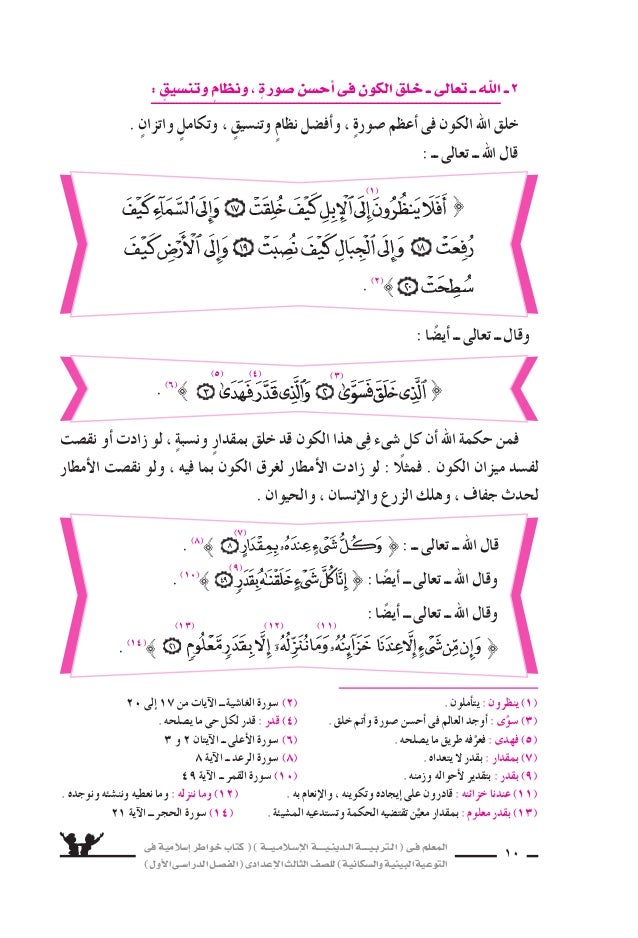 ٢ ـ الله ـ تعالى ـ خلق الكون فى أحسن صورةٍ ، ونظامٍ وتنسيقٍ :
خلق الله الكون فى أعظم صورةٍ ، وأفضل نظامٍ وتنسيقٍ ، وتكاملٍ واتزانٍ .
قال الله ـ تعالى ـ :
﴿ أَفَلَا يَنظُرُونَ (١) إِلَى ٱلْإِبِلِ كَيْفَ خُلِقَتْ ۝١٧ وَإِلَى ٱلسَّمَآءِ كَيْفَ
رُفِعَتْ ۝١٨ وَإِلَى ٱلْجِبَالِ كَيْفَ نُصِبَتْ ۝١٩ وَإِلَى ٱلْأَرْضِ كَيْفَ
سُطِحَتْ ۝٢٠ ﴾ (٢) .
وقال ـ تعالى ـ أيضًا :
﴿ ٱلَّذِى خَلَقَ فَسَوَّىٰ (٣) ۝٢ وَٱلَّذِى قَدَّرَ (٤) فَهَدَىٰ (٥) ۝٣ ﴾ (٦) .
فمن حكمة الله أن كل شىء فِى هذا الكون قد خلق بمقدارٍ ونسبةٍ ، لو زادت أو نقصت
لفسد ميزان الكون . فمثلًا : لو زادت الأمطار لغرق الكون بما فيه ، ولو نقصت الأمطار
لحدث جفاف ، وهلك الزرع والإنسان ، والحيوان .
قال الله ـ تعالى ـ : ﴿ وَكُلُّ شَىْءٍ عِندَهُۥ بِمِقْدَارٍ (٧) ۝٨ ﴾ (٨) .
وقال الله ـ تعالى ـ أيضًا : ﴿ إِنَّا كُلَّ شَىْءٍ خَلَقْنَٰهُ بِقَدَرٍ (٩) ۝٤٩ ﴾ (١٠) .
وقال الله ـ تعالى ـ أيضًا :
﴿ وَإِن مِّن شَىْءٍ إِلَّا عِندَنَا خَزَآئِنُهُۥ (١١) وَمَا نُنَزِّلُهُۥٓ (١٢) إِلَّا بِقَدَرٍ مَّعْلُومٍ (١٣) ۝٢١ ﴾ (١٤) .
(١) ينظرون : يتأملون . (٢) سورة الغاشية ـ الآيات من ١٧ إلى ٢٠
(٣) سوَّى : أوجد العالم فى أحسن صورة وأتم خلق . (٤) قدر : قدر لكل حى ما يصلحه .
(٥) فهدى : فعرَّفه طريق ما يصلحه . (٦) سورة الأعلى ـ الآيتان ٢ و ٣
(٧) بمقدار : بقدر لا يتعداه . (٨) سورة الرعد ـ الآية ٨
(٩) بقدر : بتقدير لأحواله وزمنه . (١٠) سورة القمر ـ الآية ٤٩
(١١) عندنا خزائنه : قادرون على إيجاده وتكوينه ، والإنعام به . (١٢) وما ننزله : وما نعطيه وننشئه ونوجده .
(١٣) بقدر معلوم : بمقدار معيَّن تقتضيه الحكمة وتستدعيه المشيئة . (١٤) سورة الحجر ـ الآية ٢١
١٠
المعلم فى ( التربيـــة الدينيـــة الإسلاميـــة ) ( كتاب خواطر إسلامية فى
التوعية البيئية والسكانية ) للصف الثالث الإعدادى ( الفصل الدراسى الأول )